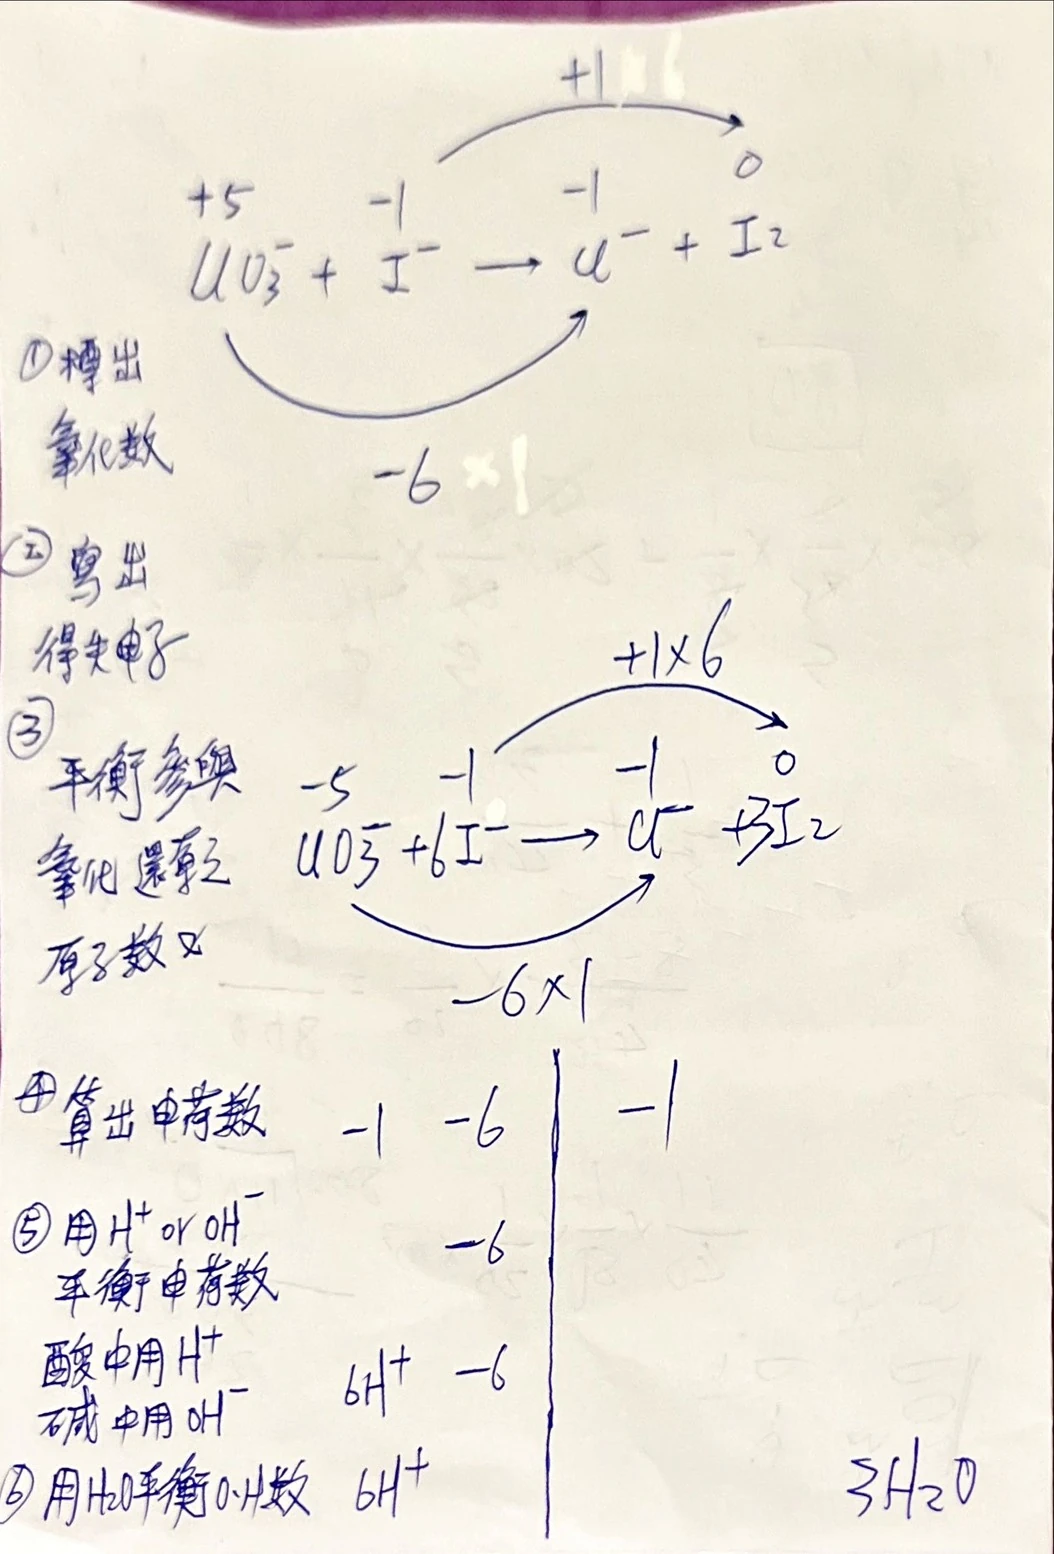 +1
+5 -1 -1 0
ClO₃⁻ + I⁻ → Cl⁻ + I₂
①標出
氧化数
-6 ×1
② 寫出
得失电子
③
+1×6
平衡參與
-5 -1 -1 0
ClO₃⁻ +6I⁻ → Cl⁻ +3I₂
氧化還原之
原子数
-6×1
④算出电荷数 -1 -6 -1
⑤用H⁺ or OH⁻ -6
平衡电荷数
酸中用H⁺ 6H⁺ -6
碱中用OH⁻
⑥用H₂O平衡O.H数 6H⁺ 3H₂O